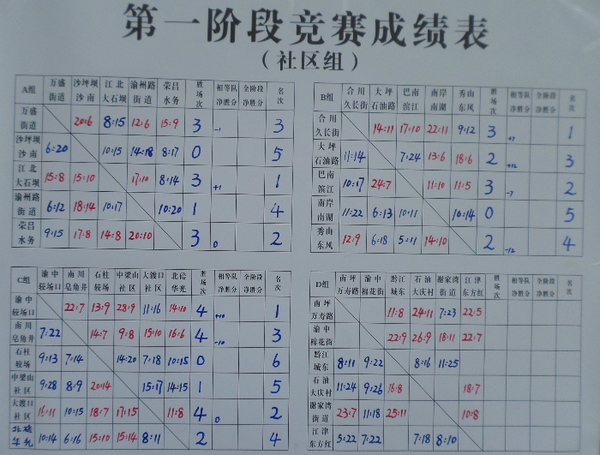 第一阶段竞赛成绩表
（社区组）
A组 万盛街道 沙坪坝沙南 江北大石坝 渝州路街道 荣昌水务 胜场次 相等队净胜分 全阶段净胜分 名次
万盛街道 20:6 8:15 12:6 15:9 3 -1 3
沙坪坝沙南 6:20 10:15 14:18 8:17 0 5
江北大石坝 15:8 15:10 17:10 8:14 3 +1 1
渝州路街道 6:12 18:14 10:17 10:20 1 4
荣昌水务 9:15 17:8 14:8 20:10 3 0 2
B组 合川久长街 大坪石油路 巴南滨江 南岸南湖 秀山东风 胜场次 相等队净胜分 全阶段净胜分 名次
合川久长街 14:11 17:10 22:11 9:12 3 +7 1
大坪石油路 11:14 7:24 13:6 18:6 2 +12 3
巴南滨江 10:17 24:7 11:10 11:5 3 -7 2
南岸南湖 11:22 6:13 10:11 10:14 0 5
秀山东风 12:9 6:18 5:11 14:10 2 -12 4
C组 渝中较场口 南川皂角井 石柱较场 中梁山社区 大渡口社区 北碚华光 胜场次 相等队净胜分 全阶段净胜分 名次
渝中较场口 22:7 13:9 28:9 11:16 14:10 4 +10 1
南川皂角井 7:22 14:7 9:8 15:10 16:6 4 -10 3
石柱较场 9:13 7:14 14:20 7:18 10:15 0 6
中梁山社区 9:28 8:9 20:14 15:17 14:15 1 5
大渡口社区 16:11 10:15 18:7 17:15 11:8 4 0 2
北碚华光 10:14 6:16 15:10 15:14 8:11 2 4
D组 南坪万寿路 渝中棉花街 黔江城东 石油大庆村 谢家湾街道 江津东方红 胜场次 相等队净胜分 全阶段净胜分 名次
南坪万寿路 11:8 24:11 7:23 22:5
渝中棉花街 22:9 26:9 18:11 22:7
黔江城东 8:11 9:22 8:16 11:25
石油大庆村 11:24 9:26 16:8 18:7
谢家湾街道 23:7 11:18 25:11 10:8
江津东方红 5:22 7:22 7:18 8:10